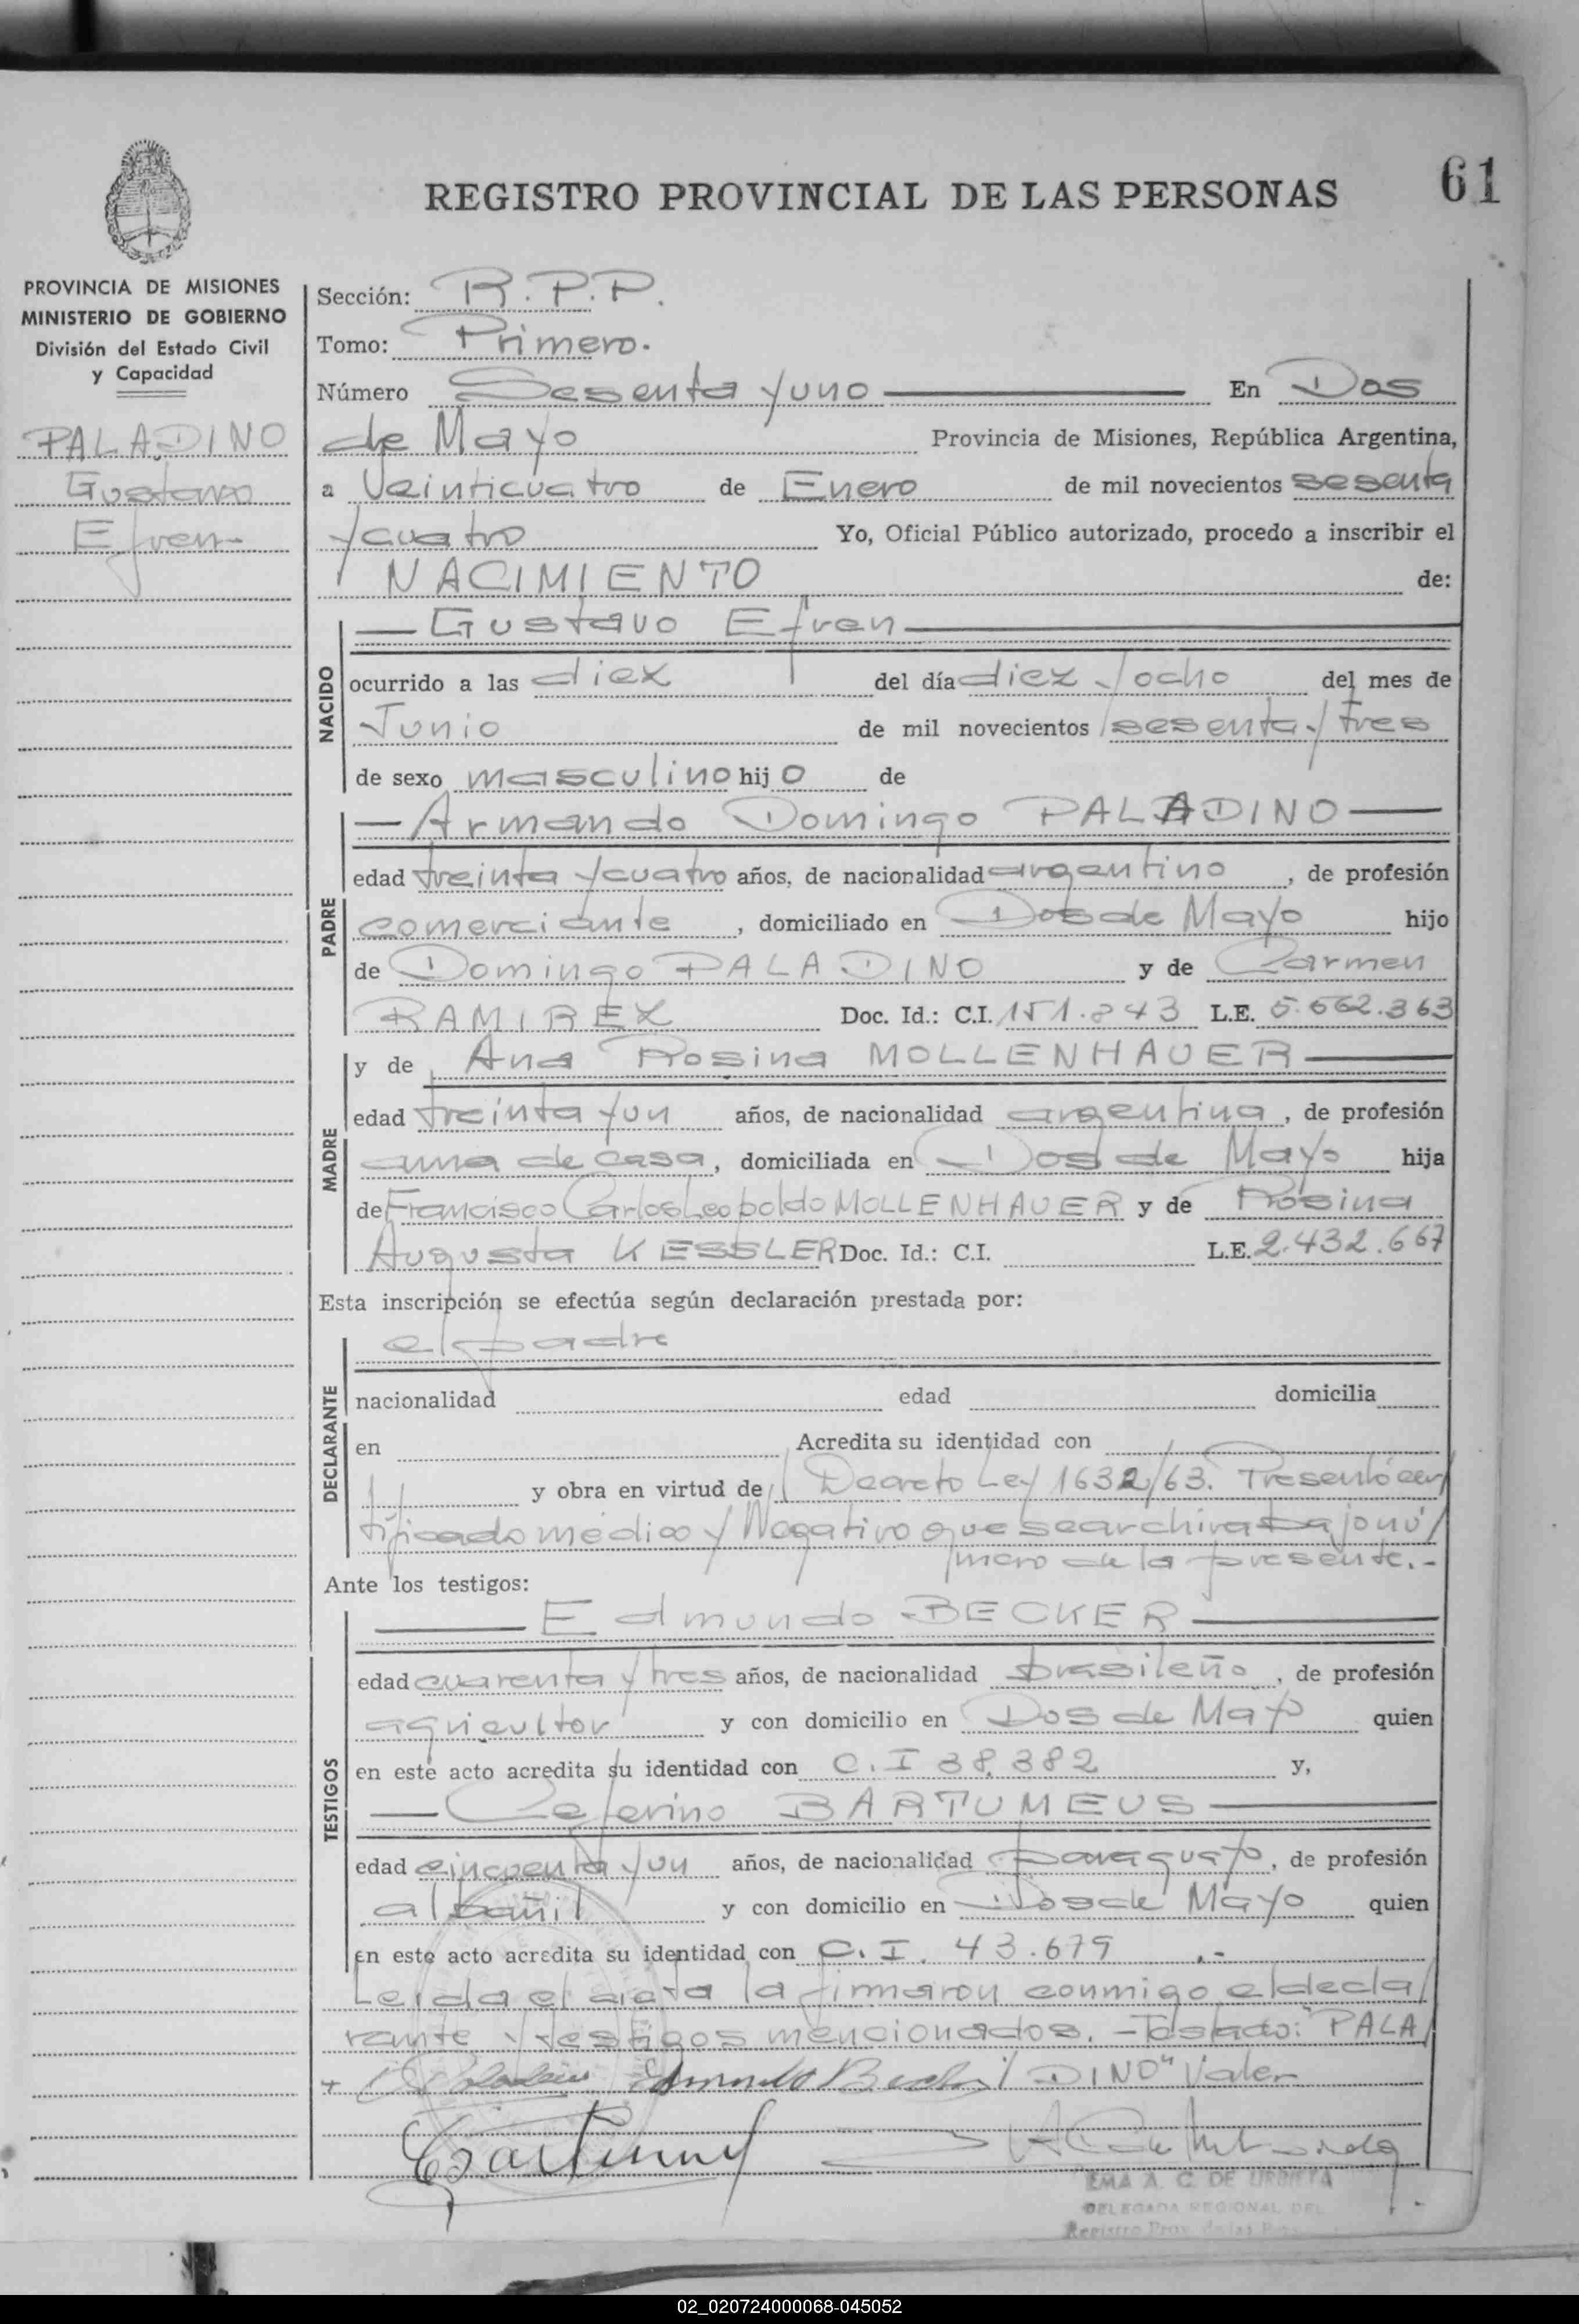 REGISTRO PROVINCIAL DE LAS PERSONAS
61
PROVINCIA DE MISIONES
MINISTERIO DE GOBIERNO
División del Estado Civil
y Capacidad
PALADINO
Gustavo
Efren
Sección: R.P.P.
Tomo: Primero.
Número Sesenta y uno En Dos
de Mayo Provincia de Misiones, República Argentina,
a Veinticuatro de Enero de mil novecientos sesenta
y cuatro Yo, Oficial Público autorizado, procedo a inscribir el
NACIMIENTO de:
NACIDO
Gustavo Efren
ocurrido a las diez del día diez y ocho del mes de
Junio de mil novecientos sesenta y tres
de sexo masculino hijo de
PADRE
Armando Domingo PALADINO
edad treinta y cuatro años, de nacionalidad argentino, de profesión
comerciante, domiciliado en Dos de Mayo hijo
de Domingo PALADINO y de Carmen
RAMIREZ Doc. Id.: C.I. 151.843 L.E. 5.662.363
MADRE
y de Ana Rosina MOLLENHAUER
edad treinta y un años, de nacionalidad argentina, de profesión
ama de casa, domiciliada en Dos de Mayo hija
de Francisco Carlos Leopoldo MOLLENHAUER y de Rosina
Augusta KESSLER Doc. Id.: C.I. L.E. 2.432.667
Esta inscripción se efectúa según declaración prestada por:
DECLARANTE
el padre
nacionalidad edad domicilia
en Acredita su identidad con
y obra en virtud de Decreto Ley 1632/63. Presentó cer/
tificado médico y Negativo que se archiva bajo nú/
mero de la presente.-
Ante los testigos:
TESTIGOS
Edmundo BECKER
edad cuarenta y tres años, de nacionalidad brasileño, de profesión
agricultor y con domicilio en Dos de Mayo quien
en este acto acredita su identidad con C.I 38.382 y,
Ceferino BARTUMEUS
edad cincuenta y un años, de nacionalidad paraguayo, de profesión
albañil y con domicilio en Dos de Mayo quien
en este acto acredita su identidad con C.I. 43.679.-
Leida el acta la firmaron conmigo el decla/
rante y testigos mencionados. -Testado: "PALA/
DINO" Valen
EMA A. C. DE URRUTIA
DELEGADA REGIONAL DEL
Registro Prov. de las
02_020724000068-045052